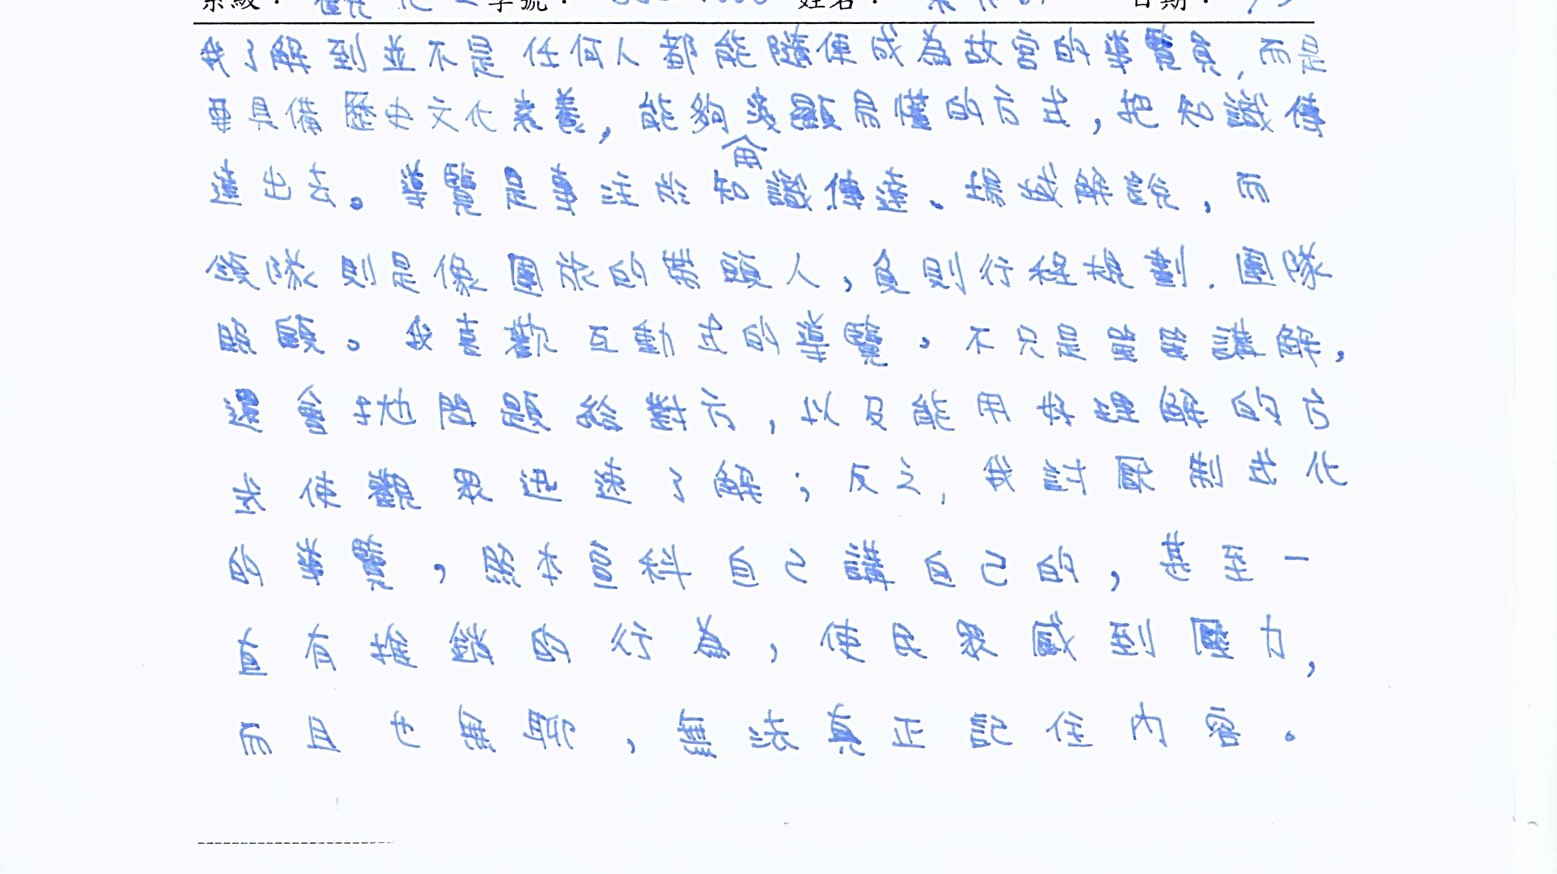 系級： 學號： 姓名： 日期：
我了解到並不是任何人都能隨便成為故宮的導覽員，而是
要具備歷史文化素養，能夠淺顯易懂的方式，把知識傳
用
達出去。導覽是專注於知識傳達、場域解說，而
領隊則是像團旅的帶頭人，負則行程規劃、團隊
照顧。我喜歡互動式的導覽，不只是單單講解，
還會拋問題給對方，以及能用好理解的方
式使觀眾迅速了解；反之，我討厭制式化
的導覽，照本宣科自己講自己的，甚至一
直有推銷的行為，使民眾感到壓力，
而且也無聊，無法真正記住內容。